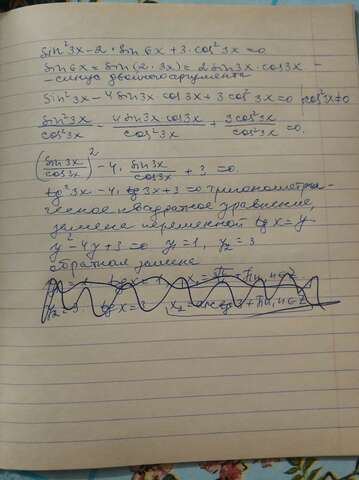 sin²3x-2·sin6x+3·cos²3x=0
sin6x=sin(2·3x)=2sin3x·cos3x-
-синус двойного аргумента
sin²3x-4sin3x cos3x+3cos²3x=0 |cos²x≠0
sin²3x/cos²3x - 4sin3x cos3x/cos²3x + 3cos²3x/cos²3x=0.
(sin3x/cos3x)²-4·sin3x/cos3x+3=0.
tg²3x-4·tg3x+3=0 тригонометри-
ческое квадратное уравнение,
замена переменной tg x=y
y²-4y+3=0 y₁=1, y₂=3
обратная замена
y₂=3 tg x=3 x₂=arctg3+πn, n∈Z